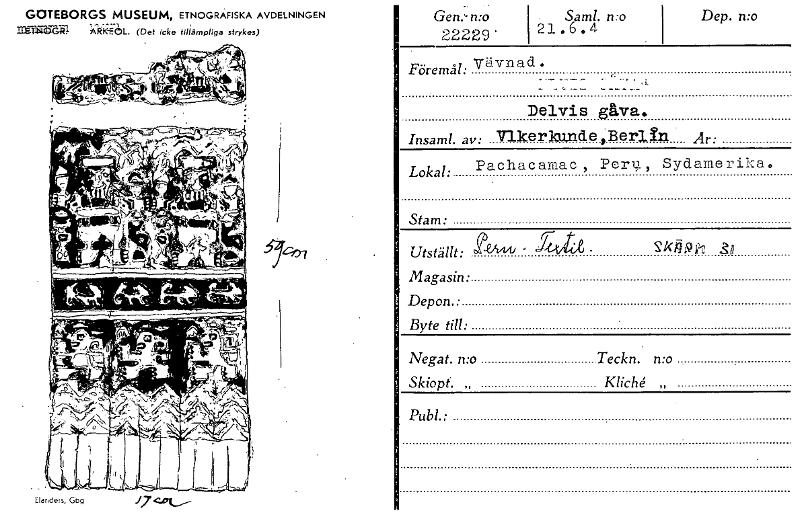 GÖTEBORGS MUSEUM, ETNOGRAFISKA AVDELNINGEN
ETNOGR. ARKEOL. (Det icke tillämpliga strykes)
59 cm
17 cm
Elanders, Gbg
Gen. n:o Saml. n:o Dep. n:o
22229 21.6.4
Föremål: Vävnad.
Delvis gåva.
Insaml. av: Vlkerkunde,Berlin År:
Lokal: Pachacamac, Peru, Sydamerika.
Stam:
Utställt: Peru - Textil. SKÅP 31
Magasin:
Depon.:
Byte till:
Negat. n:o Teckn. n:o
Skiopt. „ Kliché „
Publ.: